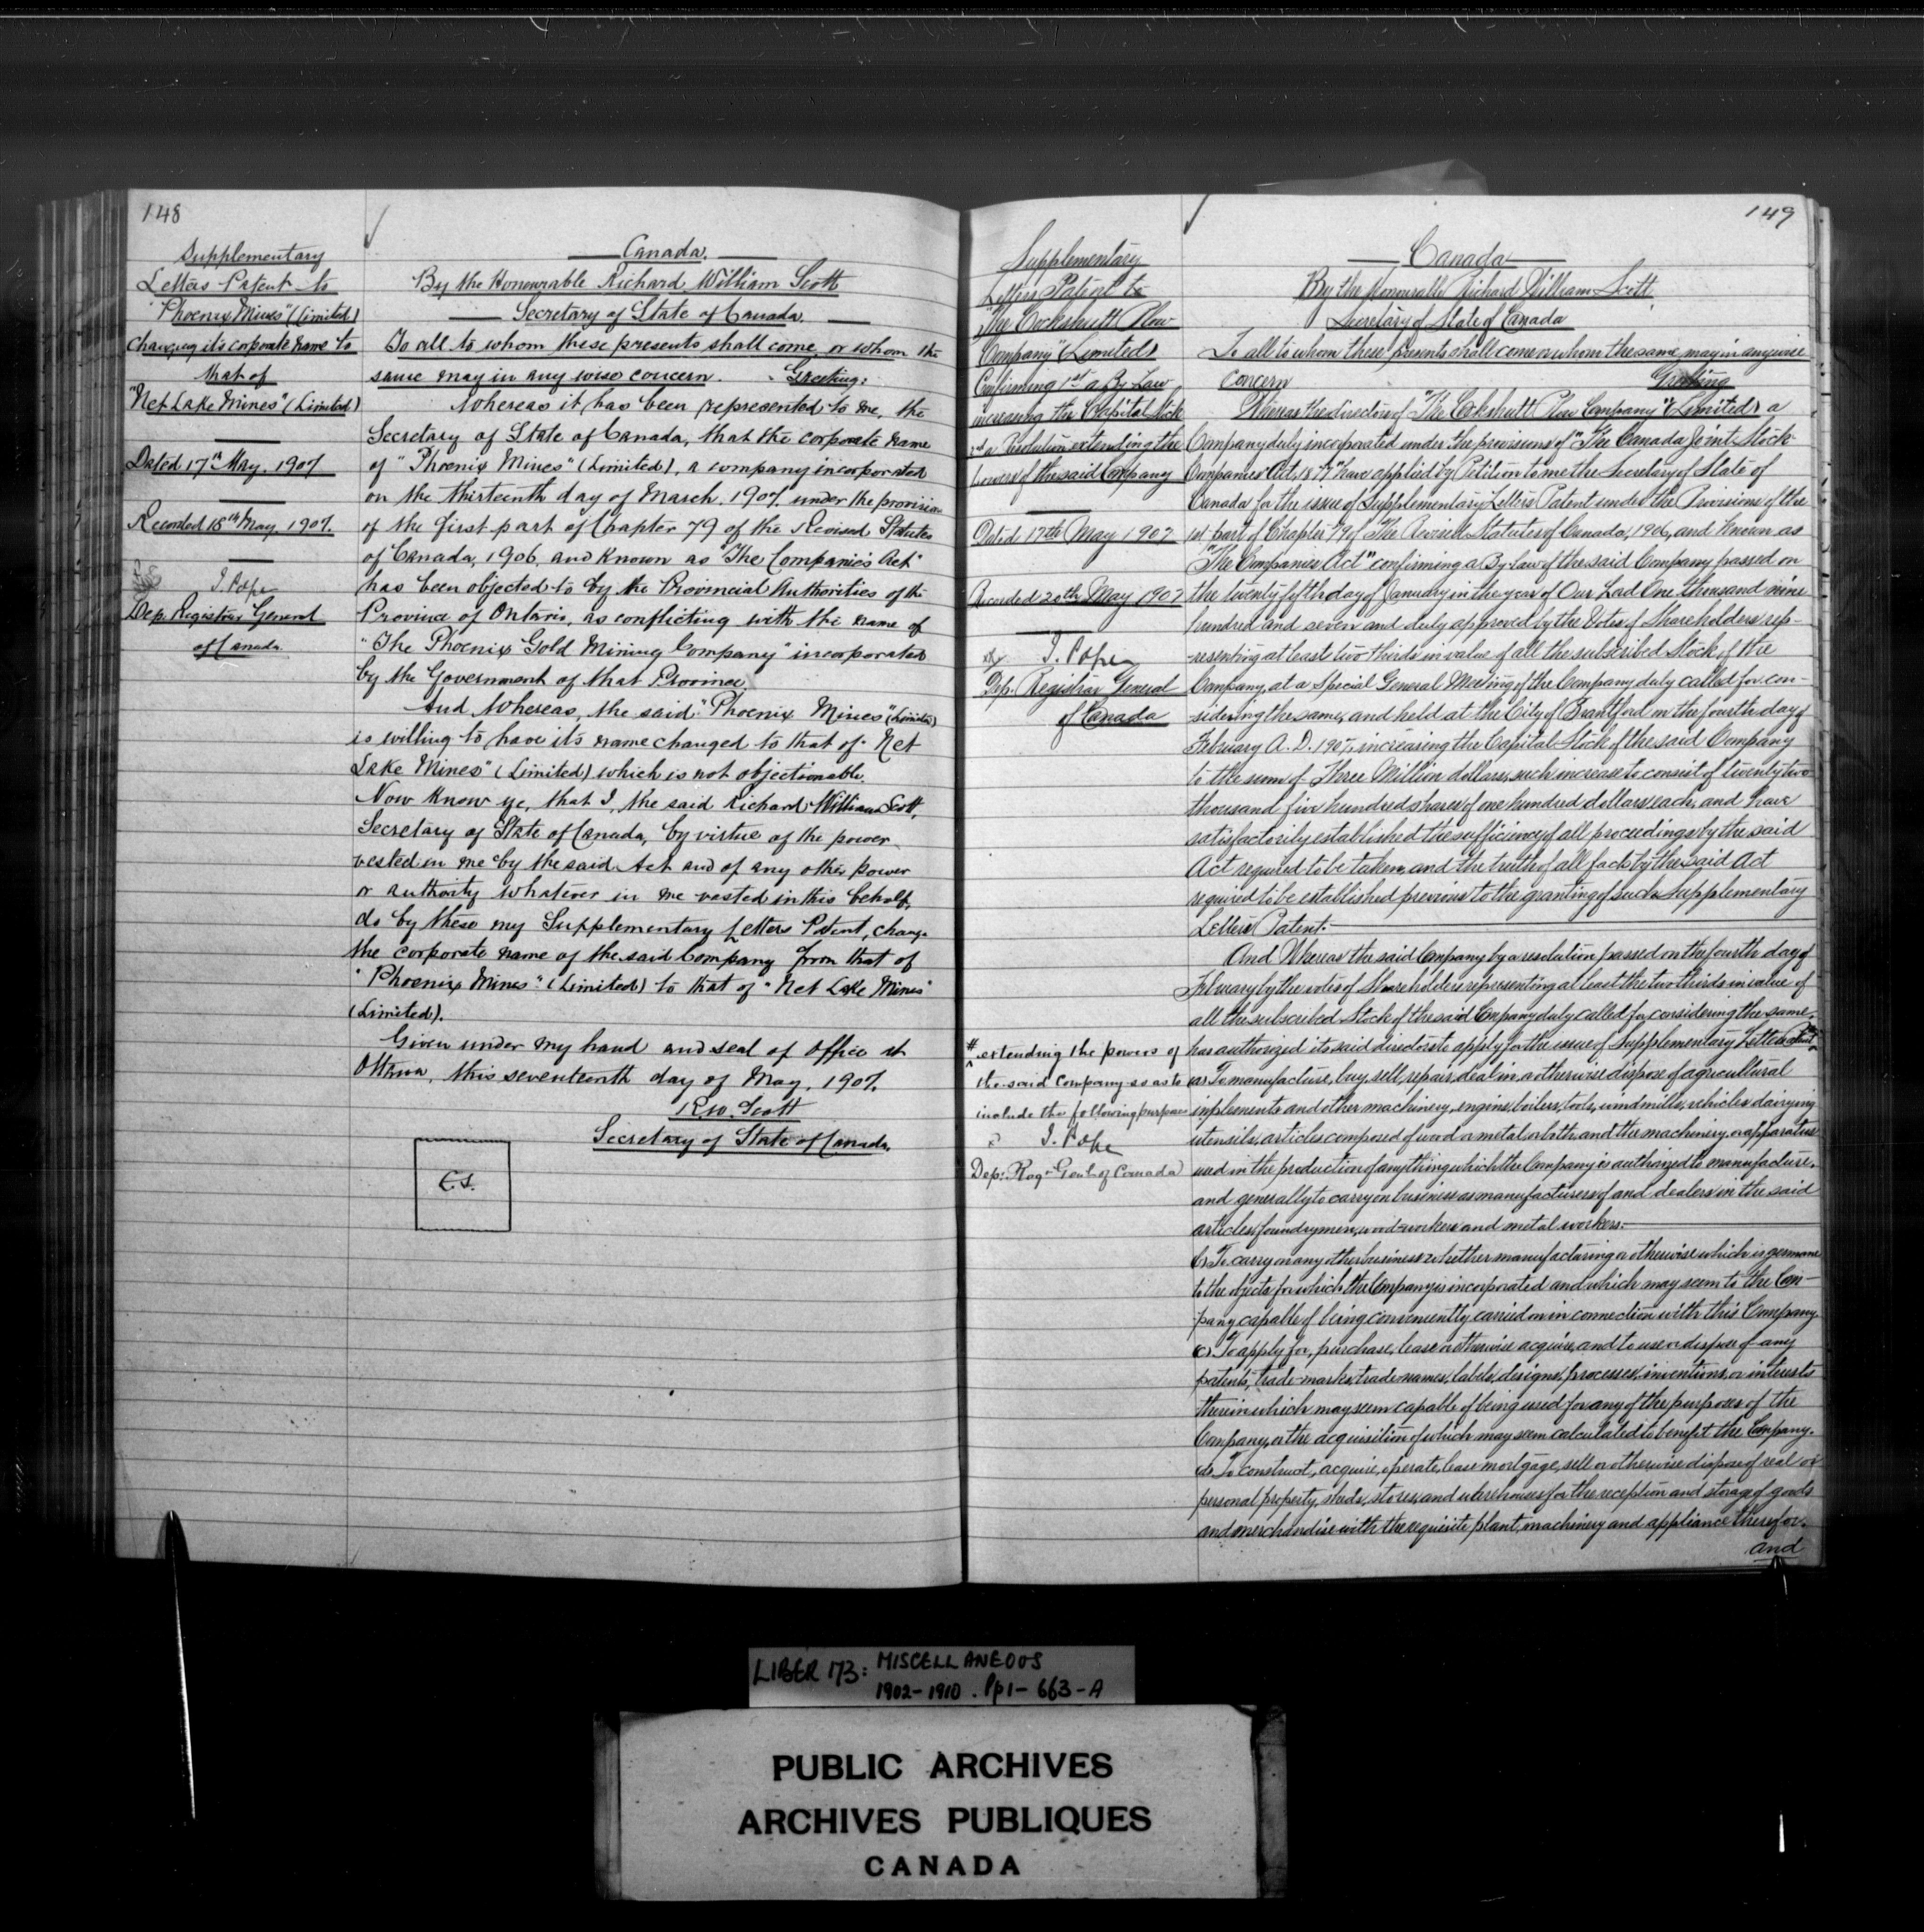 148
Supplementary
Letters Patent to
"Phoenix Mines" (Limited)
changing it's corporate name to
that of
"Net Lake Mines" (Limited)
Dated 17th May, 1907
Recorded 18th May, 1907.
J. Pope
Dep. Registrar General
of Canada.
Canada.
By the Honourable Richard William Scott
Secretary of State of Canada.
To all to whom these presents shall come, or whom the
same may in any wise concern. Greeting:
Whereas it has been represented to me, the
Secretary of State of Canada, that the corporate name
of "Phoenix Mines" (Limited), a company incorporated
on the thirteenth day of March, 1907, under the provisions
of the first part of Chapter 79 of the Revised Statutes
of Canada, 1906, and known as "The Companies Act"
has been objected to by the Provincial Authorities of the
Province of Ontario, as conflicting with the name of
"The Phoenix Gold Mining Company" incorporated
by the Government of that Province.
And Whereas, the said "Phoenix Mines" (Limited)
is willing to have it's name changed to that of "Net
Lake Mines" (Limited) which is not objectionable.
Now Know ye, that I, the said Richard William Scott,
Secretary of State of Canada, by virtue of the power
vested in me by the said Act and of any other power
or authority whatever in me vested in this behalf,
do by these my Supplementary Letters Patent, change
the corporate name of the said Company from that of
"Phoenix Mines" (Limited) to that of "Net Lake Mines"
(Limited).
Given under my hand and seal of office at
Ottawa, this seventeenth day of May, 1907.
R.W. Scott
Secretary of State of Canada.
149
Supplementary
Letters Patent to
"The Cockshutt Plow
Company" (Limited)
Confirming 1st a By-Law
increasing the Capital Stock
2nd a Resolution extending the
powers of the said Company
Dated 17th May 1907
Recorded 20th May 1907
J. Pope
Dep. Registrar General
of Canada
Canada
By the Honourable Richard William Scott
Secretary of State of Canada
To all to whom these presents shall come or whom the same may in anywise
concern Greeting
Whereas the directors of "The Cockshutt Plow Company" (Limited) a
Company duly incorporated under the provisions of "The Canada Joint Stock
Companies Act, 1877" have applied by Petition to me the Secretary of State of
Canada for the issue of Supplementary Letters Patent under the Provisions of the
1st part of Chapter 79 of The Revised Statutes of Canada, 1906, and known as
"The Companies Act" confirming a By-law of the said Company passed on
the twenty fifth day of January in the year of Our Lord One thousand nine
hundred and seven and duly approved by the Votes of Shareholders rep-
-resenting at least two thirds in value of all the subscribed Stock of the
Company, at a Special General Meeting of the Company duly called for con-
sidering the same, and held at the City of Brantford on the fourth day of
February A.D. 1907, increasing the Capital Stock of the said Company
to the sum of Three Million dollars, such increase to consist of twenty two
thousand five hundred shares of one hundred dollars each, and have
satisfactorily established the sufficiency of all proceedings by the said
Act required to be taken, and the truth of all facts by the said Act
required to be established previous to the granting of such Supplementary
Letters Patent.
And Whereas the said Company by a resolution passed on the fourth day of
February by the votes of Shareholders representing at least the two thirds in value of
all the subscribed Stock of the said Company duly called for considering the same,
has authorized its said directors to apply for the issue of Supplementary Letters Patent
# extending the powers of
the said Company so as to
include the following purposes
J. Pope
Dep. Reg. Genl of Canada
(a) To manufacture, buy, sell, repair, deal in, or otherwise dispose of agricultural
implements and other machinery, engines, boilers, tools, windmills, vehicles, dairying
utensils, articles composed of wood or metal or both, and the machinery or apparatus
used in the production of anything which the Company is authorized to manufacture,
and generally to carry on business as manufacturers of and dealers in the said
articles, foundrymen, wood-workers and metal workers.
(b) To carry on any other business whether manufacturing or otherwise which is germane
to the objects for which the Company is incorporated and which may seem to the Com-
pany capable of being conveniently carried on in connection with this Company.
(c) To apply for, purchase, lease or otherwise acquire, and to use or dispose of any
patents, trade-marks, trade names, labels, designs, processes, inventions, or interests
therein which may seem capable of being used for any of the purposes of the
Company, or the acquisition of which may seem calculated to benefit the Company.
(d) To construct, acquire, operate, lease mortgage, sell or otherwise dispose of real or
personal property, sheds, stores, and warehouses for the reception and storage of goods
and merchandise with the requisite plant, machinery and appliance therefor.
and
LIBER 173: MISCELLANEOUS
1902-1910. Pp1-663-A
PUBLIC ARCHIVES
ARCHIVES PUBLIQUES
CANADA